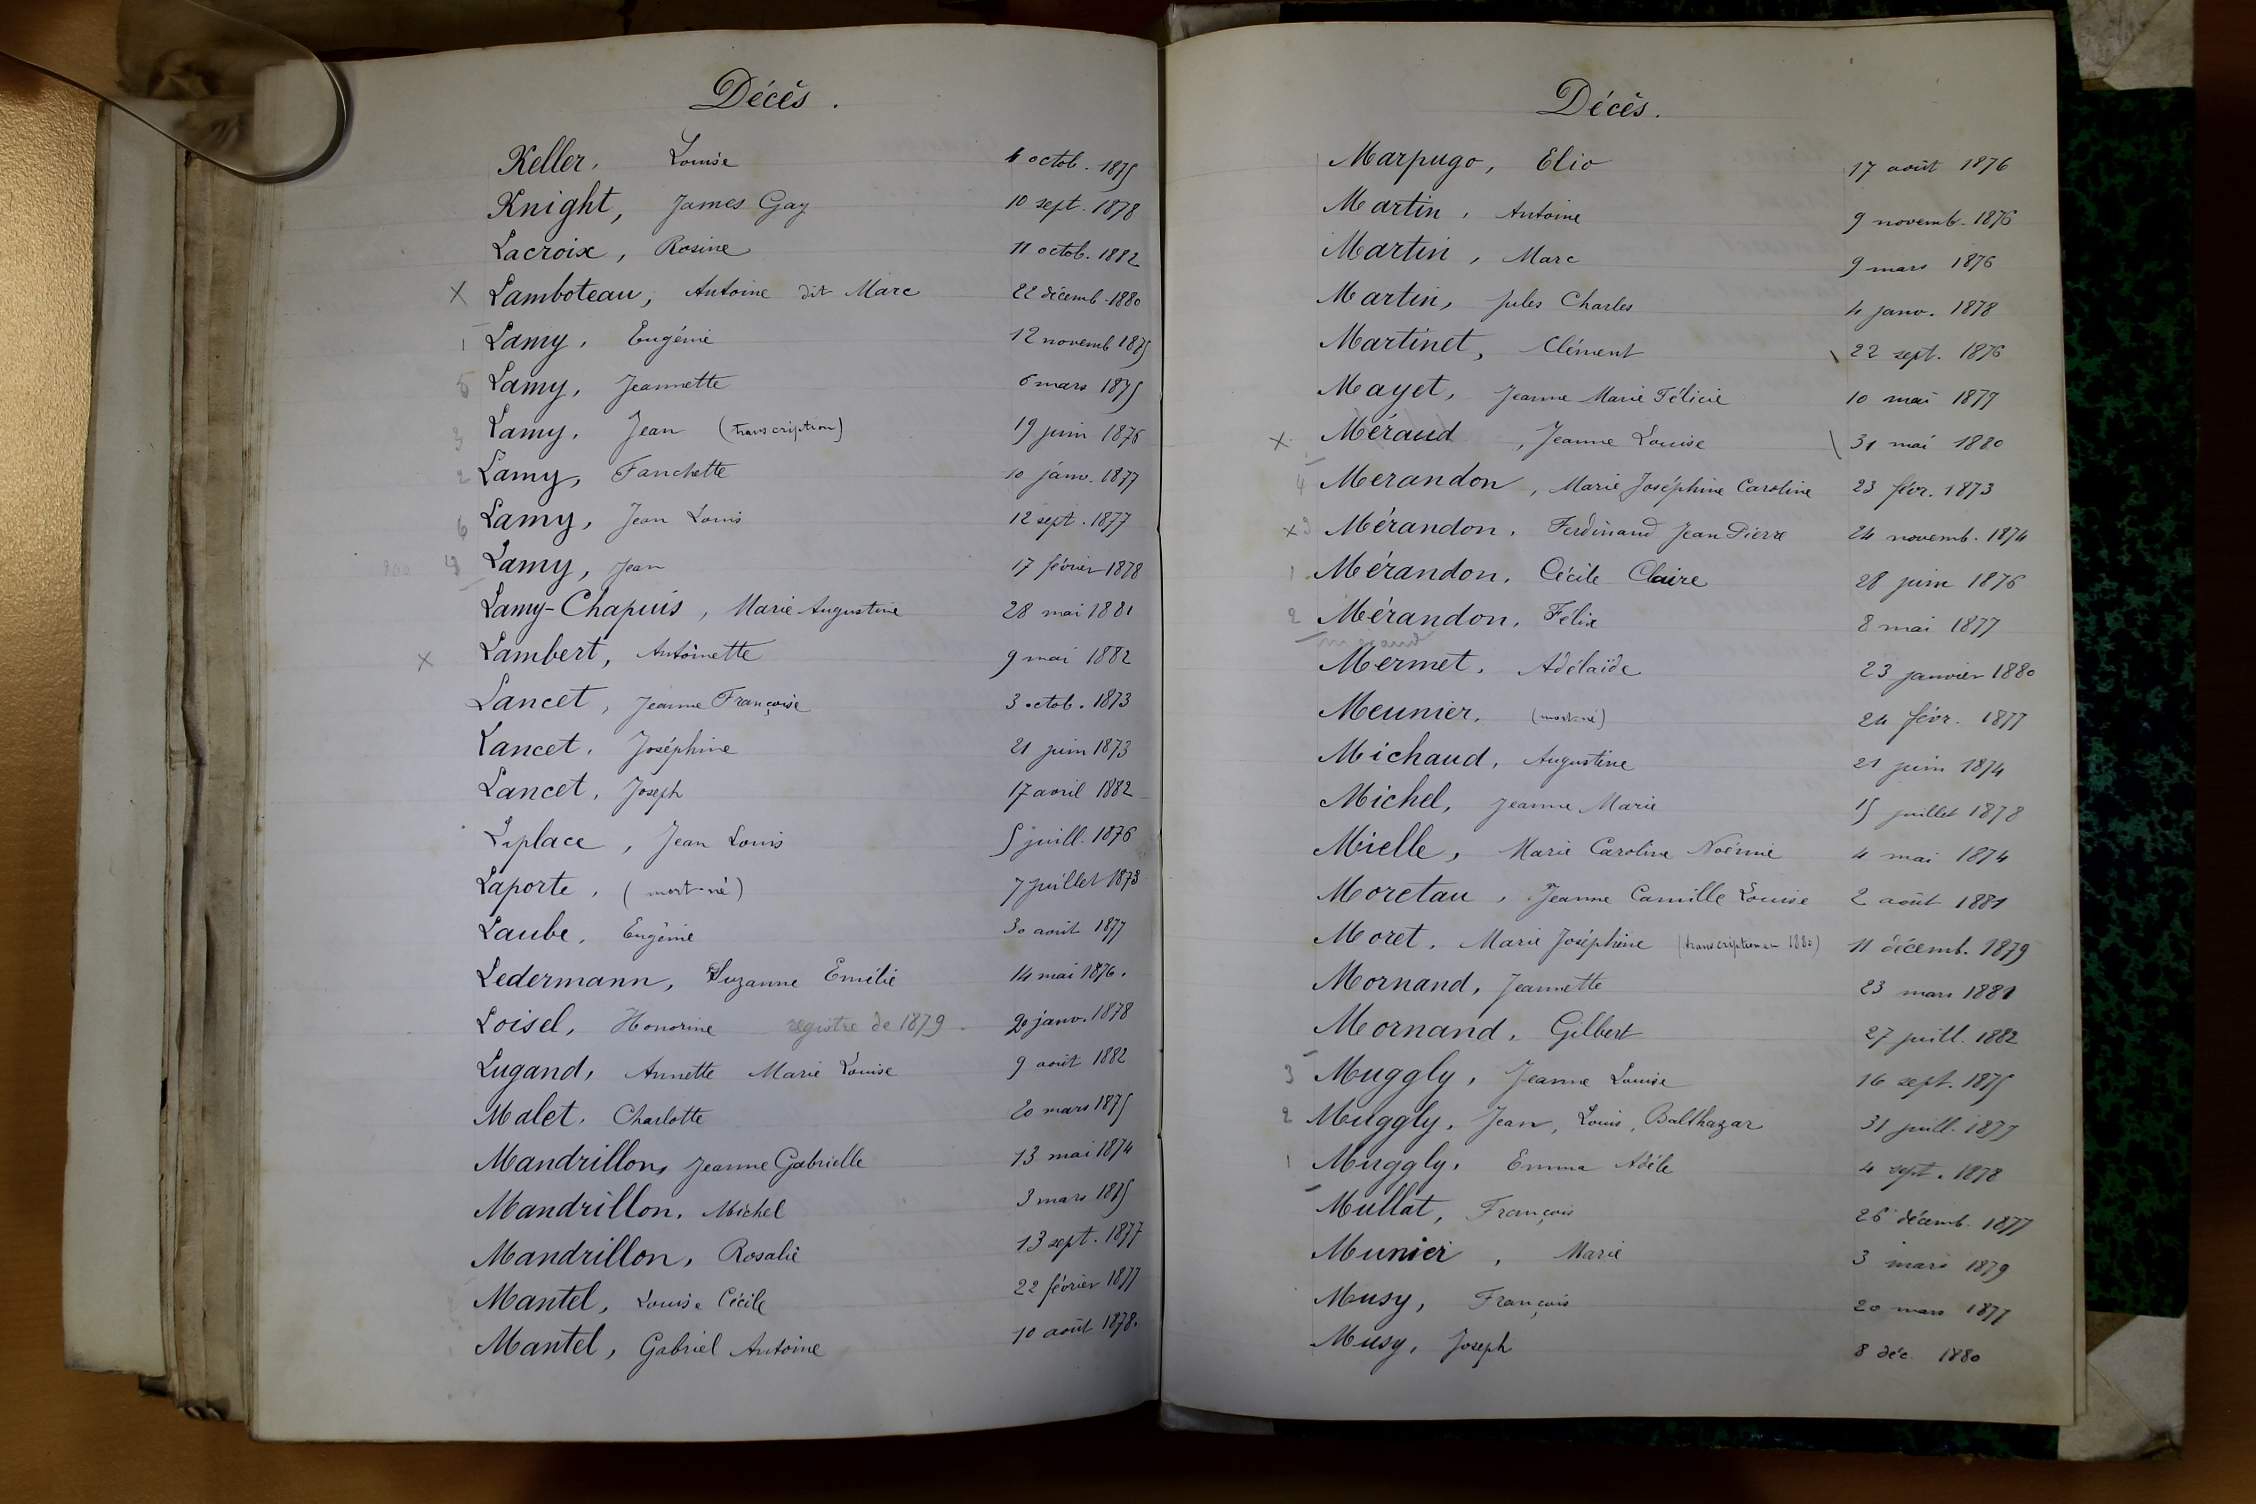 Décès.
Keller, Louise 4 octob. 1875
Knight, James Gay 10 sept. 1878
Lacroix, Rosine 11 octob. 1882
X Lamboteau, Antoine dit Marc 22 décemb. 1880
1 Lamy, Eugénie 12 novemb 1875
5 Lamy, Jeannette 6 mars 1875
3 Lamy, Jean (transcription) 19 juin 1876
2 Lamy, Fanchette 10 janv. 1877
6 Lamy, Jean Louis 12 sept. 1877
4 Lamy, Jean 17 février 1878
Lamy-Chapuis, Marie Augustine 28 mai 1881
X Lambert, Antoinette 9 mai 1882
Lancet, Jeanne Françoise 3 octob. 1873
Lancet, Joséphine 21 juin 1873
Lancet, Joseph 17 avril 1882
Laplace, Jean Louis 5 juill. 1876
Laporte, (mort-né) 7 juillet 1873
Laube, Eugénie 30 août 1877
Ledermann, Suzanne Emélie 14 mai 1876.
Loisel, Honorine registre de 1879 20 janv. 1878
Lugand, Annette Marie Louise 9 août 1882
Malet, Charlotte 20 mars 1875
Mandrillon, Jeanne Gabrielle 13 mai 1874
Mandrillon, Michel 3 mars 1875
Mandrillon, Rosalie 13 sept. 1877
Mantel, Louise Cécile 22 février 1877
Mantel, Gabriel Antoine 10 août 1878.
Décès.
Marpugo, Elio 17 août 1876
Martin, Antoine 9 novemb. 1876
Martin, Marc 9 mars 1876
Martin, Jules Charles 4 janv. 1878
Martinet, Clément 22 sept. 1876
Mayet, Jeanne Marie Félicie 10 mai 1877
X Méraud, Jeanne Louise 31 mai 1880
4 Merandon, Marie Joséphine Caroline 23 févr. 1873
x 3 Mérandon, Ferdinand Jean Pierre 24 novemb. 1874
1 Mérandon, Cécile Claire 28 juin 1876
2 Mérandon, Félix 8 mai 1877
Mermet, Adélaïde 23 janvier 1880
Meunier, (mort-né) 24 févr. 1877
Michaud, Augustine 21 juin 1874
Michel, Jeanne Marie 15 juillet 1878
Mielle, Marie Caroline Noémie 4 mai 1874
Moretau, Jeanne Camille Louise 2 août 1881
Moret, Marie Joséphine (transcription en 1880) 11 décemb. 1879
Mornand, Jeannette 23 mars 1881
Mornand, Gilbert 27 juill. 1882
3 Muggly, Jeanne Louise 16 sept. 1875
2 Muggly, Jean, Louis, Balthazar 31 juill. 1877
1 Muggly, Emma Adèle 4 sept. 1878
Mullat, François 26 décemb. 1877
Munier, Marie 3 mars 1879
Musy, François 20 mars 1877
Musy, Joseph 8 déc. 1880